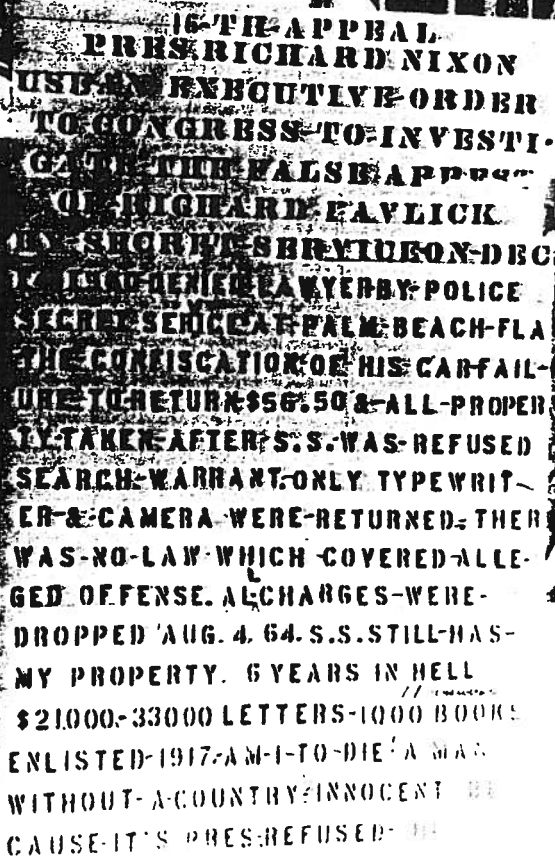 16-TH-APPEAL
PRES RICHARD NIXON
USE-AN EXECUTIVE-ORDER
TO-CONGRESS-TO-INVESTI-
GATE-THE-FALSE-ARREST
OF-RICHARD-PAVLICK
BY-SECRET-SERVICE-ON-DEC
DENIED-LAWYER-BY-POLICE
SECRET SERVICE AT-PALM-BEACH-FLA
THE-CONFISCATION-OF HIS CAR-FAIL-
URE-TO-RETURN-$56.50 &-ALL-PROPER
TY-TAKEN-AFTER-S.S.-WAS-REFUSED
SEARCH-WARRANT-ONLY TYPEWRIT-
ER-&-CAMERA-WERE-RETURNED-THER
WAS-NO-LAW-WHICH-COVERED-ALLE-
GED OFFENSE. ALL CHARGES-WERE-
DROPPED 'AUG. 4. 64. S.S. STILL-HAS-
MY PROPERTY. 6 YEARS IN HELL
$21.000.-33000 LETTERS-1000 BOOKS
ENLISTED-1917-AM-I-TO-DIE'A MAN
WITHOUT-A-COUNTRY-INNOCENT BE
CAUSE-IT'S PRES-REFUSED-